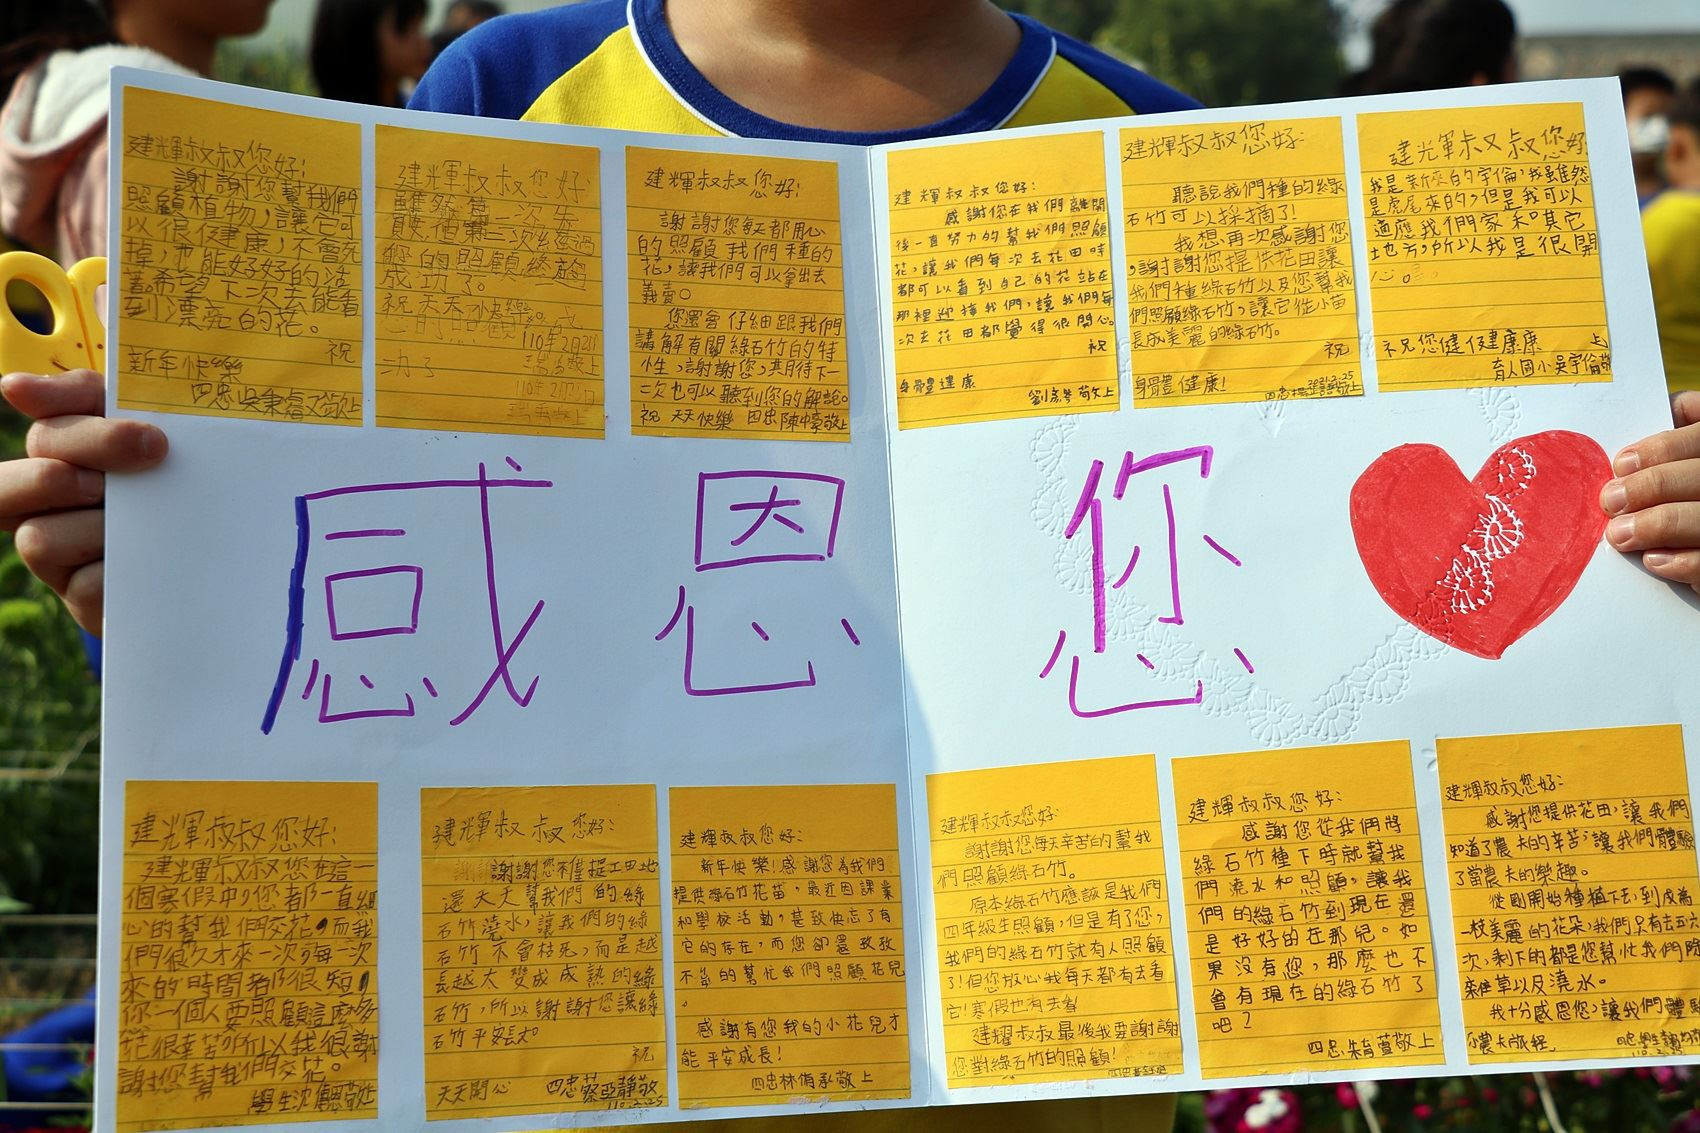 建輝叔叔您好:
謝謝您幫我們
照顧植物,讓它可
以很健康,不會死
掉,也能好好的活
著。希望下次去能看
到漂亮的花。
祝
新年快樂
四忠
敬上
建輝叔叔您好
雖然第一次失
成功了。
祝天天快樂。
110年2月
敬上
建輝叔叔您好:
謝謝您每天都用心
的照顧我們種的
花,讓我們可以拿出去
義賣。
您還會仔細跟我們
講解有關綠石竹的特
性,謝謝您,期待下一
次也可以聽到您的解說。
祝 天天快樂 四忠陳 敬上
建輝叔叔您好:
感謝您在我們離開
後一直努力的幫我們照顧
花,讓我們每次去花田時
都可以看到自己的花站在
那裡迎接我們,讓我們每
次去花田都覺得很開心。
祝
身體健康
敬上
建輝叔叔您好:
聽說我們種的綠
石竹可以採摘了!
我想再次感謝您
,謝謝您提供花田讓
我們種綠石竹以及您幫我
們照顧綠石竹,讓它從小苗
長成美麗的綠石竹。
祝
身體健康!
敬上
建輝叔叔您好
我是新來的宇倫,我雖然
是虎尾來的,但是我可以
適應我們家和其它
地方,所以我是很開
心。
祝您健健康康
上
育人國小吳宇倫敬
感恩您
建輝叔叔您好:
建輝叔叔您在這一
個寒假中,您都一直細
心的幫我們交花,而我
們很久才來一次,每一次
來的時間都很短,
你一個人要照顧這麼多
花很辛苦,所以我很謝
謝您幫我們交花。
學生沈 敬上
建輝叔叔您好:
謝謝您不僅提工田地
還天天幫我們的綠
石竹澆水,讓我們的綠
石竹不會枯死,而是越
長越大變成成熟的綠
石竹,所以謝謝您讓綠
石竹平安長大。
祝
天天開心 四忠蔡亞靜敬
110.2.25
建輝叔叔您好:
新年快樂!感謝您為我們
提供綠石竹花苗,最近因課業
和學校活動,甚致快忘了有
它的存在,而您卻還孜孜
不倦的幫忙我們照顧花兒
。
感謝有您我的小花兒才
能平安成長!
四忠林侑承敬上
建輝叔叔您好:
謝謝您每天辛苦的幫我
們照顧綠石竹。
原本綠石竹應該是我們
四年級生照顧,但是有了您,
我們的綠石竹就有人照顧
了!但您放心我每天都有去看
它!寒假也有去看
建耀叔叔最後我要謝謝
您對綠石竹的照顧!
建輝叔叔您好:
感謝您從我們將
綠石竹種下時就幫我
們澆水和照顧,讓我
們的綠石竹到現在還
是好好的在那兒。如
果沒有您,那麼也不
會有現在的綠石竹了
吧?
四忠朱 萱敬上
建輝叔叔您好:
感謝您提供花田,讓我們
知道了農夫的辛苦,讓我們體驗
了當農夫的樂趣。
從剛開始種植下去,到成為
一枝美麗的花朵,我們只有去五六
次,剩下的都是您幫忙我們除
雜草以及澆水。
我十分感恩您,讓我們體驗
小農夫旅程。